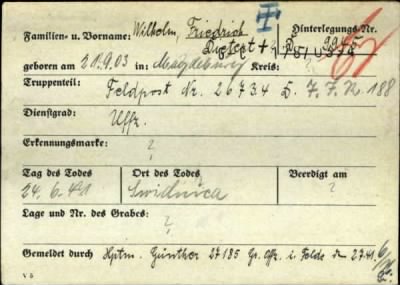 Familien- u. Vorname: Wilhelm, Friedrich Hinterlegungs-Nr.
geboren am 21.9.03 in: Magdeburg Kreis: ?
Truppenteil: Feldpost Nr. 26734 D.
Dienstgrad: Uffz.
Erkennungsmarke: ?
Tag des Todes Ort des Todes Beerdigt am
24.6.41 Swidnica ?
Lage und Nr. des Grabes: ?
Gemeldet durch Hptm. Günther 27185 Gr. Offz. i. Felde
V 5